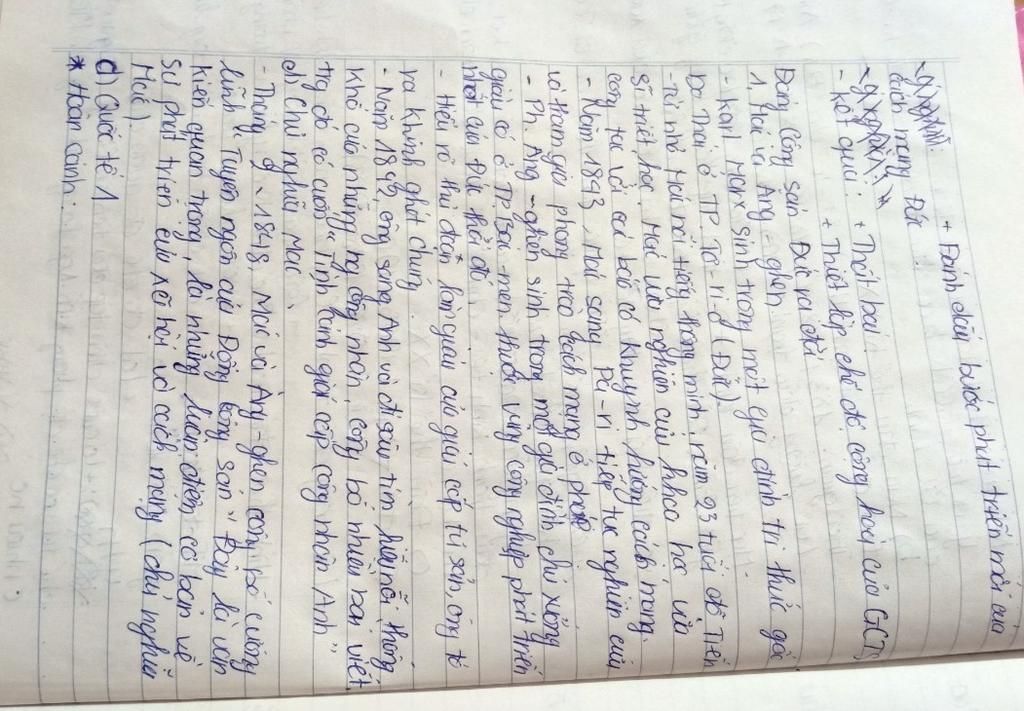 + Đánh dấu bước phát triển mới của
cách mạng Đức
- Kết quả: + Thất bại
+ Thiết lập chế độ cộng hoà của GCTS
Đảng Cộng sản Đức ra đời
1, Mác và Ăng-ghen
- Karl Marx sinh trong một gia đình tri thức gốc
Do Thái ở TP Tơ-ri-ơ (Đức).
- Từ nhỏ Mác nổi tiếng thông minh, năm 23 tuổi đỗ Tiến
sĩ triết học. Mác vừa nghiên cứu khoa học vừa
cộng tác với các báo có khuynh hướng cách mạng
- Năm 1843, Mác sang Pa-ri tiếp tục nghiên cứu
và tham gia phong trào cách mạng ở pháp
- Ph. Ăng-ghen sinh trong một gia đình chủ xưởng
giàu có ở TP Bác-men thuộc vùng công nghiệp phát triển
nhất của Đức thời đó
- Hiểu rõ thủ đoạn làm giàu của giai cấp tư sản, ông tỏ
ra khinh ghét chúng
- Năm 1842, ông sang Anh và đi sâu tìm hiểu nỗi thống
khổ của những ng công nhân, công bố nhiều bài viết,
trg đó có cuốn "Tình hình giai cấp công nhân Anh"
d) Chủ nghĩa Mác
- Tháng 2-1848, Mác và Ăng-ghen công bố cương
lĩnh "Tuyên ngôn của Đảng Cộng sản". Đây là văn
kiện quan trọng, là những luận điểm cơ bản về
sự phát triển của xã hội và cách mạng (chủ nghĩa
Mác).
d) Quốc tế 1
* Hoàn cảnh: